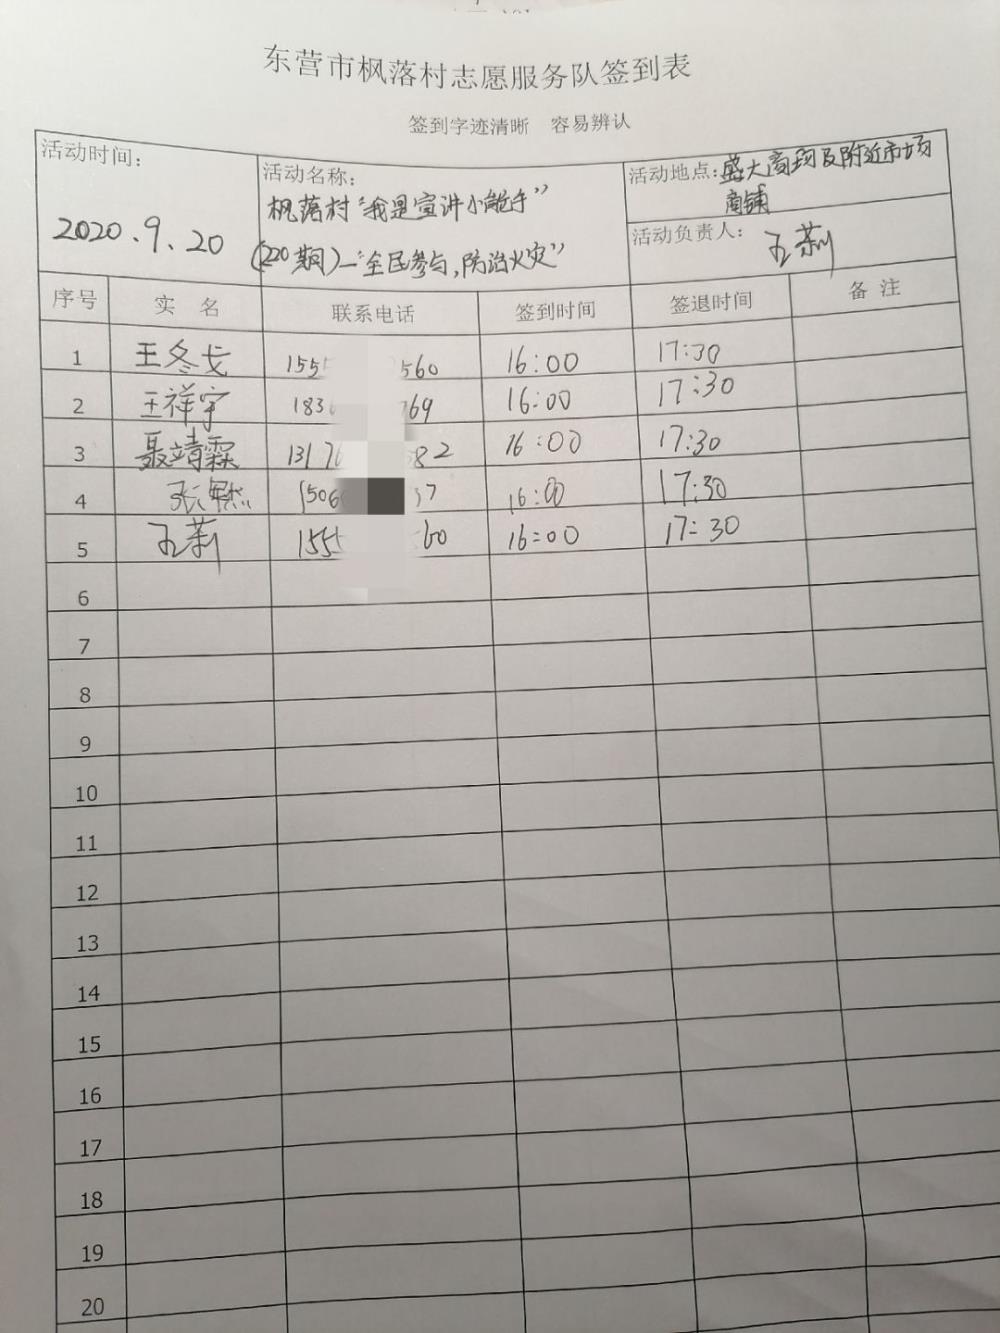 东营市枫落村志愿服务队签到表
签到字迹清晰 容易辨认
活动时间：
2020.9.20
活动名称：
枫落村“我是宣讲小能手”
(220期)—“全民参与，防治火灾”
活动地点：盛大商场及附近市场
商铺
活动负责人：
王莉
序号 实 名 联系电话 签到时间 签退时间 备 注
1 王冬戈 155 560 16:00 17:30
2 王祥宇 183 769 16:00 17:30
3 聂靖霖 13176 382 16:00 17:30
4 张 1506 37 16:00 17:30
5 王莉 1555 60 16:00 17:30
6
7
8
9
10
11
12
13
14
15
16
17
18
19
20